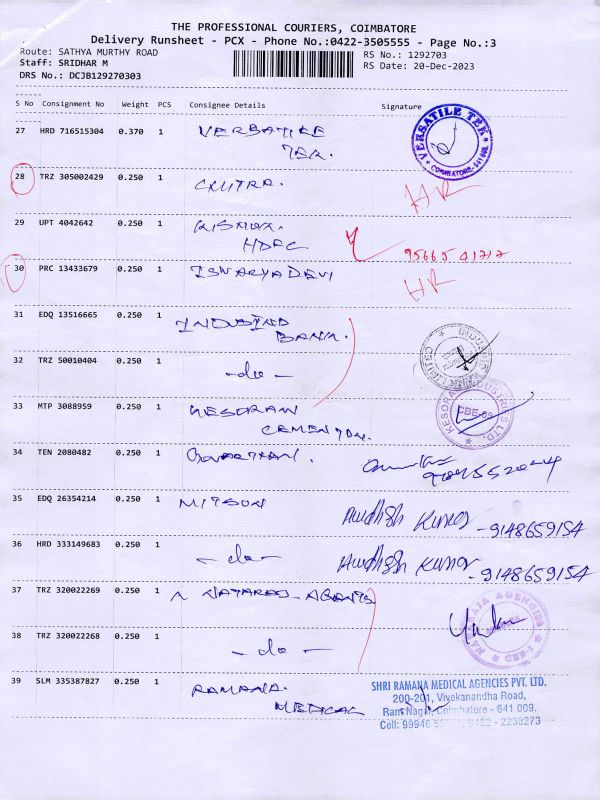 THE PROFESSIONAL COURIERS, COIMBATORE
Delivery Runsheet - PCX - Phone No.:0422-3505555 - Page No.:3
Route: SATHYA MURTHY ROAD RS No.: 1292703
Staff: SRIDHAR M RS Date: 20-Dec-2023
DRS No.: DCJB129270303
S No Consignment No Weight PCS Consignee Details Signature
27 HRD 716515304 0.370 1 VERSATILE
TEK. VERSATILE TEK COIMBATORE-641 009.
28 TRZ 305002429 0.250 1 CHITRA. HR
29 UPT 4042642 0.250 1
HDFC 95665 01717
30 PRC 13433679 0.250 1 ISWARYA DEVI HR
31 EDQ 13516665 0.250 1 INDUSIND
BANK.
32 TRZ 50010404 0.250 1 -do-
33 MTP 3088959 0.250 1 KESORAM
CEMENT KESORAM INDUSTRIES LTD. CBE
34 TEN 2080482 0.250 1
35 EDQ 26354214 0.250 1 MITSUN Awdhesh Kumar - 9148659154
36 HRD 333149683 0.250 1 -do- Awdhesh Kumar - 9148659154
37 TRZ 320022269 0.250 1 NATARAJ AGENTS
38 TRZ 320022268 0.250 1 -do- AGENCIES CBE-1
39 SLM 335387827 0.250 1 RAMANA
MEDICAL
SHRI RAMANA MEDICAL AGENCIES PVT. LTD.
200-201, Vivekanandha Road,
Ram Nagar, Coimbatore - 641 009.
Cell: 99946 0422 - 2233273